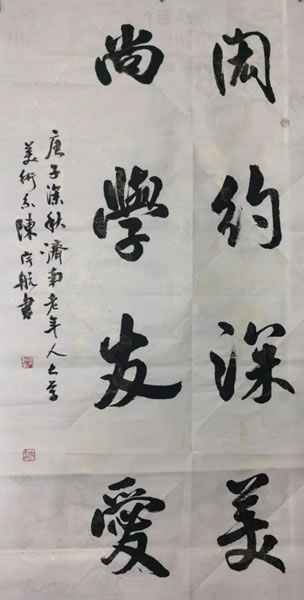 閎約深美
尚學友愛
庚子深秋濟南老年人大学
美術系陳 書